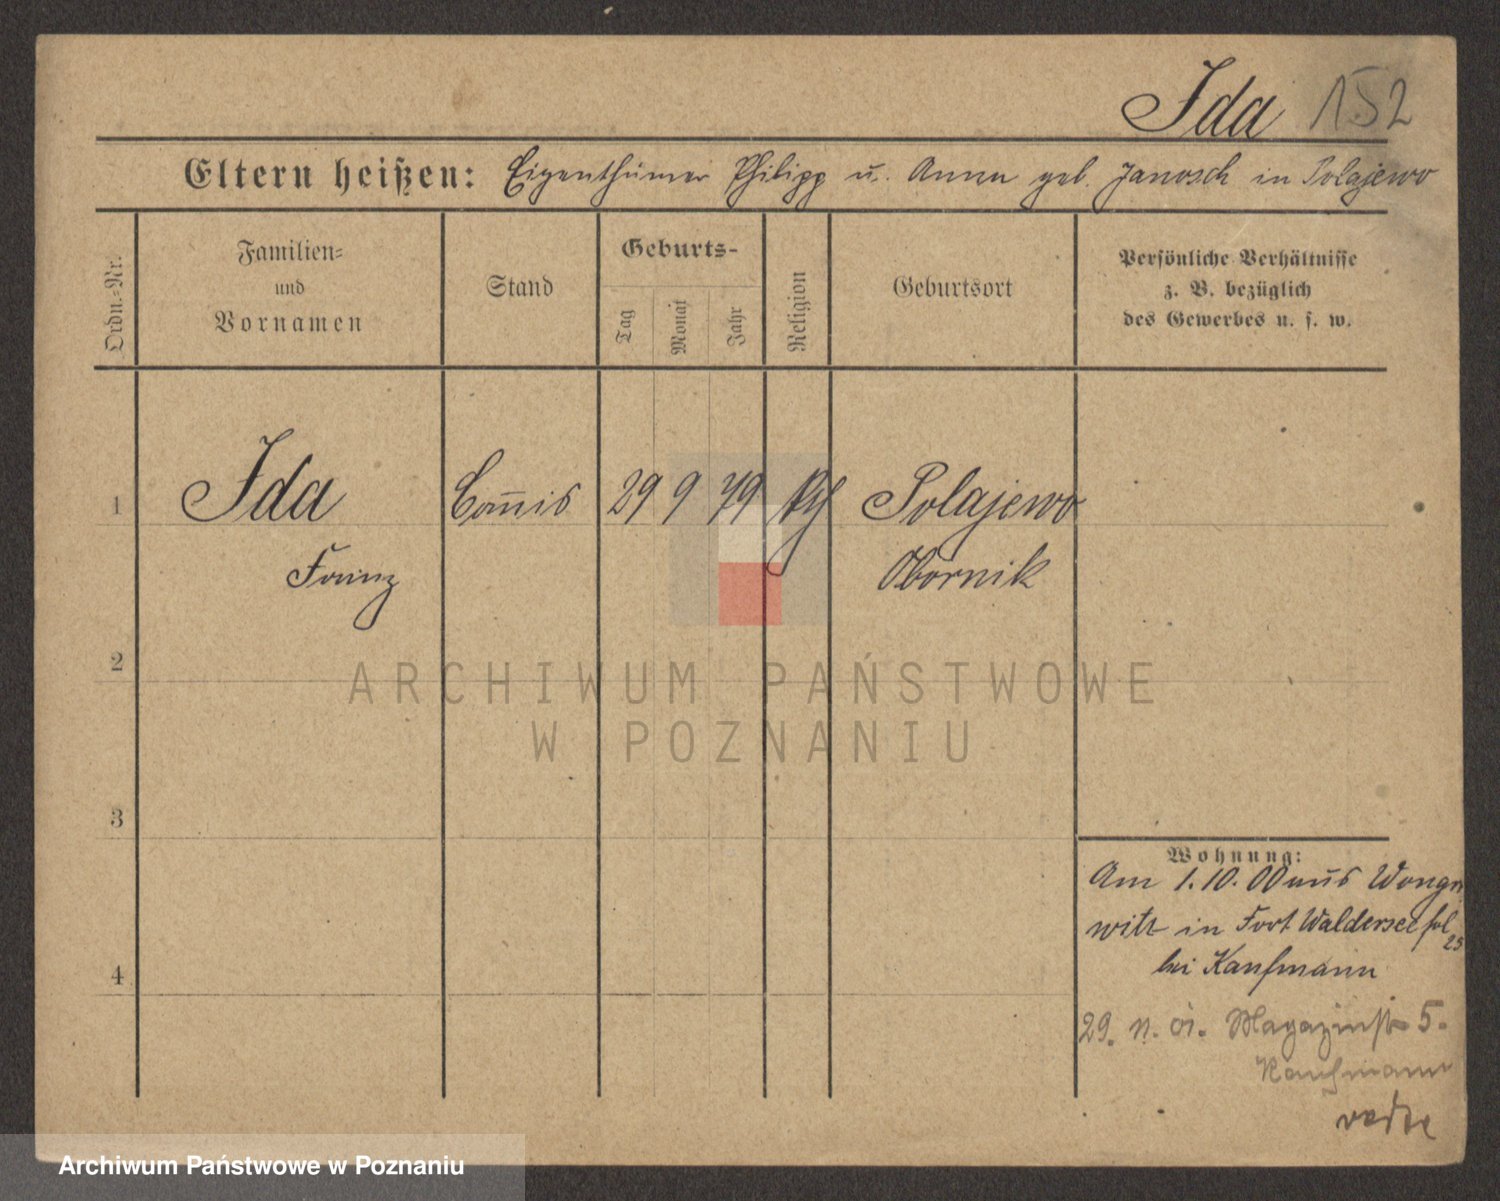 Ida 152
Eltern heißen: Eigenthümer Philipp u. Anna geb. Janosch in Polajewo
Ordn.=Nr.
Familien=
und
Vornamen
Stand
Geburts-
Tag
Monat
Jahr
Religion
Geburtsort
Persönliche Verhältnisse
z. B. bezüglich
des Gewerbes u. s. w.
1 Ida Com̄is 29 9 79 Polajewo
Franz Obornik
2
3
4
ARCHIWUM PAŃSTWOWE
W POZNANIU
Wohnung:
Am 1. 10. 00 aus Wongro
witz in Fort Waldersee fol
25
bei Kaufmann
29. Magazinstr 5.
Kaufmann
Archiwum Państwowe w Poznaniu